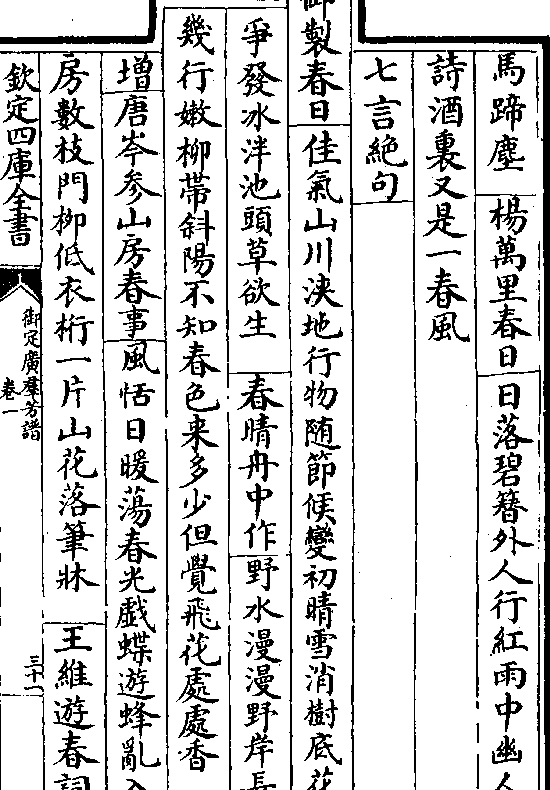 馬蹄塵 楊萬里春日 日落碧簪外人行紅雨中幽人
詩酒裏又是一春風
七言絶句
御製春日 佳氣山川浹地行物随節候變初晴雪消樹底花
爭發冰泮池頭草欲生 春晴舟中作 野水漫漫野岸長
幾行嫩柳帯斜陽不知春色来多少但覺飛花處處香
増唐岑参山房春事 風恬日暖蕩春光戲蝶遊蜂亂入
房數枝門栁低衣桁一片山花落筆牀 王維遊春詞
欽定四庫全書
御定廣羣芳譜
卷一
三十一